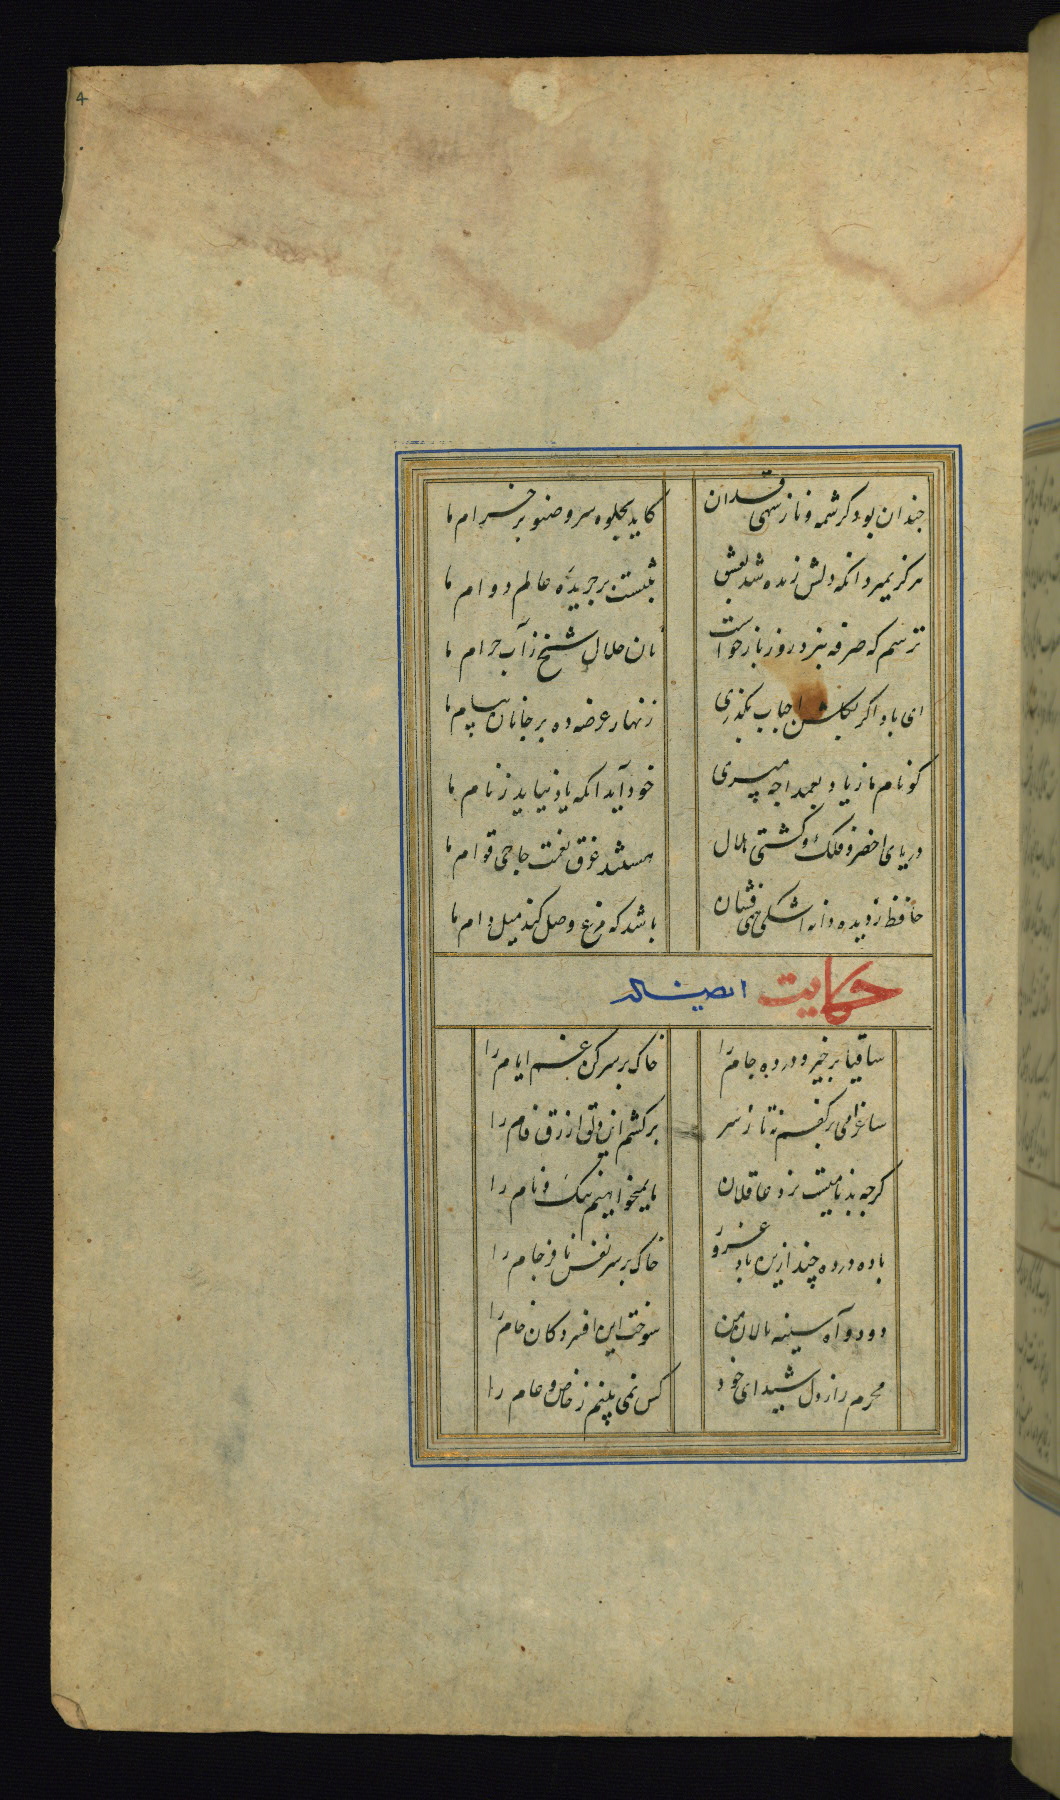 4
چندان بود کرشمه و ناز سهی قدان کاید بجلوه سرو صنوبر خرام ما
هرگز نمیرد آنکه دلش زنده شد بعشق ثبتست بر جریدهٔ عالم دوام ما
ترسم که صرفه نبرد روز بازخواست نان حلال شیخ ز آب حرام ما
ای باد اگر بگلشن احباب بگذری زنهار عرضه ده بر جانان پیام ما
گو نام ما ز یاد بعمدا چه میبری خود آید آنکه یاد نیاید ز نام ما
دریای اخضر فلک و کشتی هلال هستند غرق نعمت حاجی قوام ما
حافظ ز دیده دانه اشکی همی فشان باشد که مرغ وصل کند میل دام ما
حکایت ایضاله
ساقیا برخیز و درده جام را خاک بر سر کن غم ایام را
ساغر می بر کفم نه تا ز سر برکشم این دلق ازرق فام را
گرچه بدنامیست نزد عاقلان ما نمیخواهیم ننگ و نام را
باده درده چند ازین باد غرور خاک بر سر نفس نافرجام را
دود آه سینه نالان من سوخت این افسردگان خام را
محرم راز دل شیدای خود کس نمی بینم ز خاص و عام را